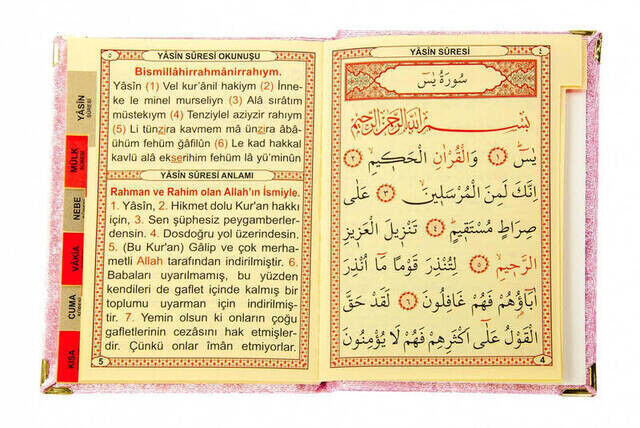 YÂSİN SÛRESİ
٤
سُورَةُ يٰسٓ
بِسْمِ اللّٰهِ الرَّحْمٰنِ الرَّحٖيمِ
يٰسٓ ﴿١﴾ وَالْقُرْاٰنِ الْحَكٖيمِ ﴿٢﴾
اِنَّكَ لَمِنَ الْمُرْسَلٖينَ ﴿٣﴾ عَلٰى
صِرَاطٍ مُسْتَقٖيمٍ ﴿٤﴾ تَنْزٖيلَ الْعَزٖيزِ
الرَّحٖيمِ ﴿٥﴾ لِتُنْذِرَ قَوْمًا مَٓا اُنْذِرَ
اٰبَٓاؤُ۬هُمْ فَهُمْ غَافِلُونَ ﴿٦﴾ لَقَدْ حَقَّ
الْقَوْلُ عَلٰٓى اَكْثَرِهِمْ فَهُمْ لَا يُؤْمِنُونَ
4
٥
YÂSİN SÛRESİ OKUNUŞU
Bismillâhirrahmânirrahıym.
Yâsîn (1) Vel kur'ânil hakiym (2) İnne-
ke le minel murseliyn (3) Alâ sırâtım
müstekıym (4) Tenziylel aziyzir rahıym
(5) Li tünzira kavmem mâ ünzira âbâ-
ühüm fehüm gâfilûn (6) Le kad hakkal
kavlü alâ ekserihim fehüm lâ yü'minûn
YÂSİN SÛRESİ ANLAMI
Rahman ve Rahim olan Allah'ın İsmiyle.
1. Yâsîn, 2. Hikmet dolu Kur'an hakkı
için, 3. Sen şüphesiz peygamberler-
densin. 4. Dosdoğru yol üzerindesin.
5. (Bu Kur'an) Gâlip ve çok merha-
metli Allah tarafından indirilmiştir. 6.
Babaları uyarılmamış, bu yüzden
kendileri de gaflet içinde kalmış bir
toplumu uyarman için indirilmiş-
tir. 7. Yemin olsun ki onların çoğu
gafletlerinin cezasını hak etmişler-
dir. Çünkü onlar îmân etmiyorlar.
5
YÂSİN
SÛRESİ
MÜLK
SÛRESİ
NEBE
VÂKIA
CUMA
KISA